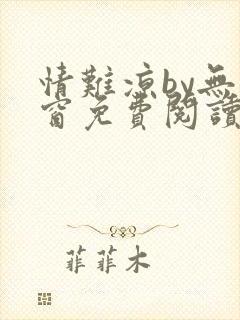 情難涼by無
窗免費閱讀
菲菲木